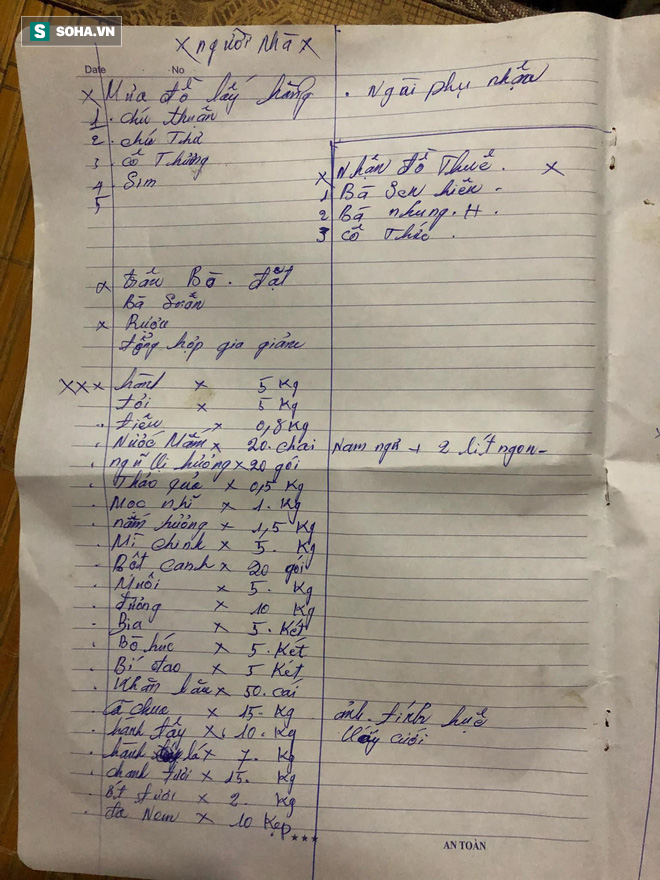 S SOHA.VN
x người nhà x
Date No
x Mua đồ lấy hàng . Ngài phụ nhận
1 . chú thuấn
2 . chú Thư
3 . cô Thương
4 . Sim
5
x Nhận đồ Thuê x
1 Bà Sen hiền .
2 Bà nhung . H .
3 cô Thức .
x trầu Bò . đặt
Bà
x Rượu
tổng hợp gia giảm
xxx hành x 5 kg
tỏi x 5 kg
tiêu x 0,8 kg
Nước Mắm x 20 . chai Nam ngư + 2 lít ngon
ngũ vị hương x 20 gói
Thảo quả x 0,5 kg
Moc nhĩ x 1 . kg
nấm hương x 1,5 kg
Mì chính x 5 . kg
Bột canh x 20 gói
Muối x 5 . kg
đường x 10 kg
Bia x 5 . két
Bò húc x 5 . két
Bí đao x 5 két
khăn x 50 . cái
cà chua x 15 . kg
hành tây x 10 . kg
hành lá x 7 . kg
chanh tươi x 15 . kg
ớt tươi x 2 . kg
đa Nem x 10 kẹp
ảnh . tính huê
lấy cưới
AN TOÀN